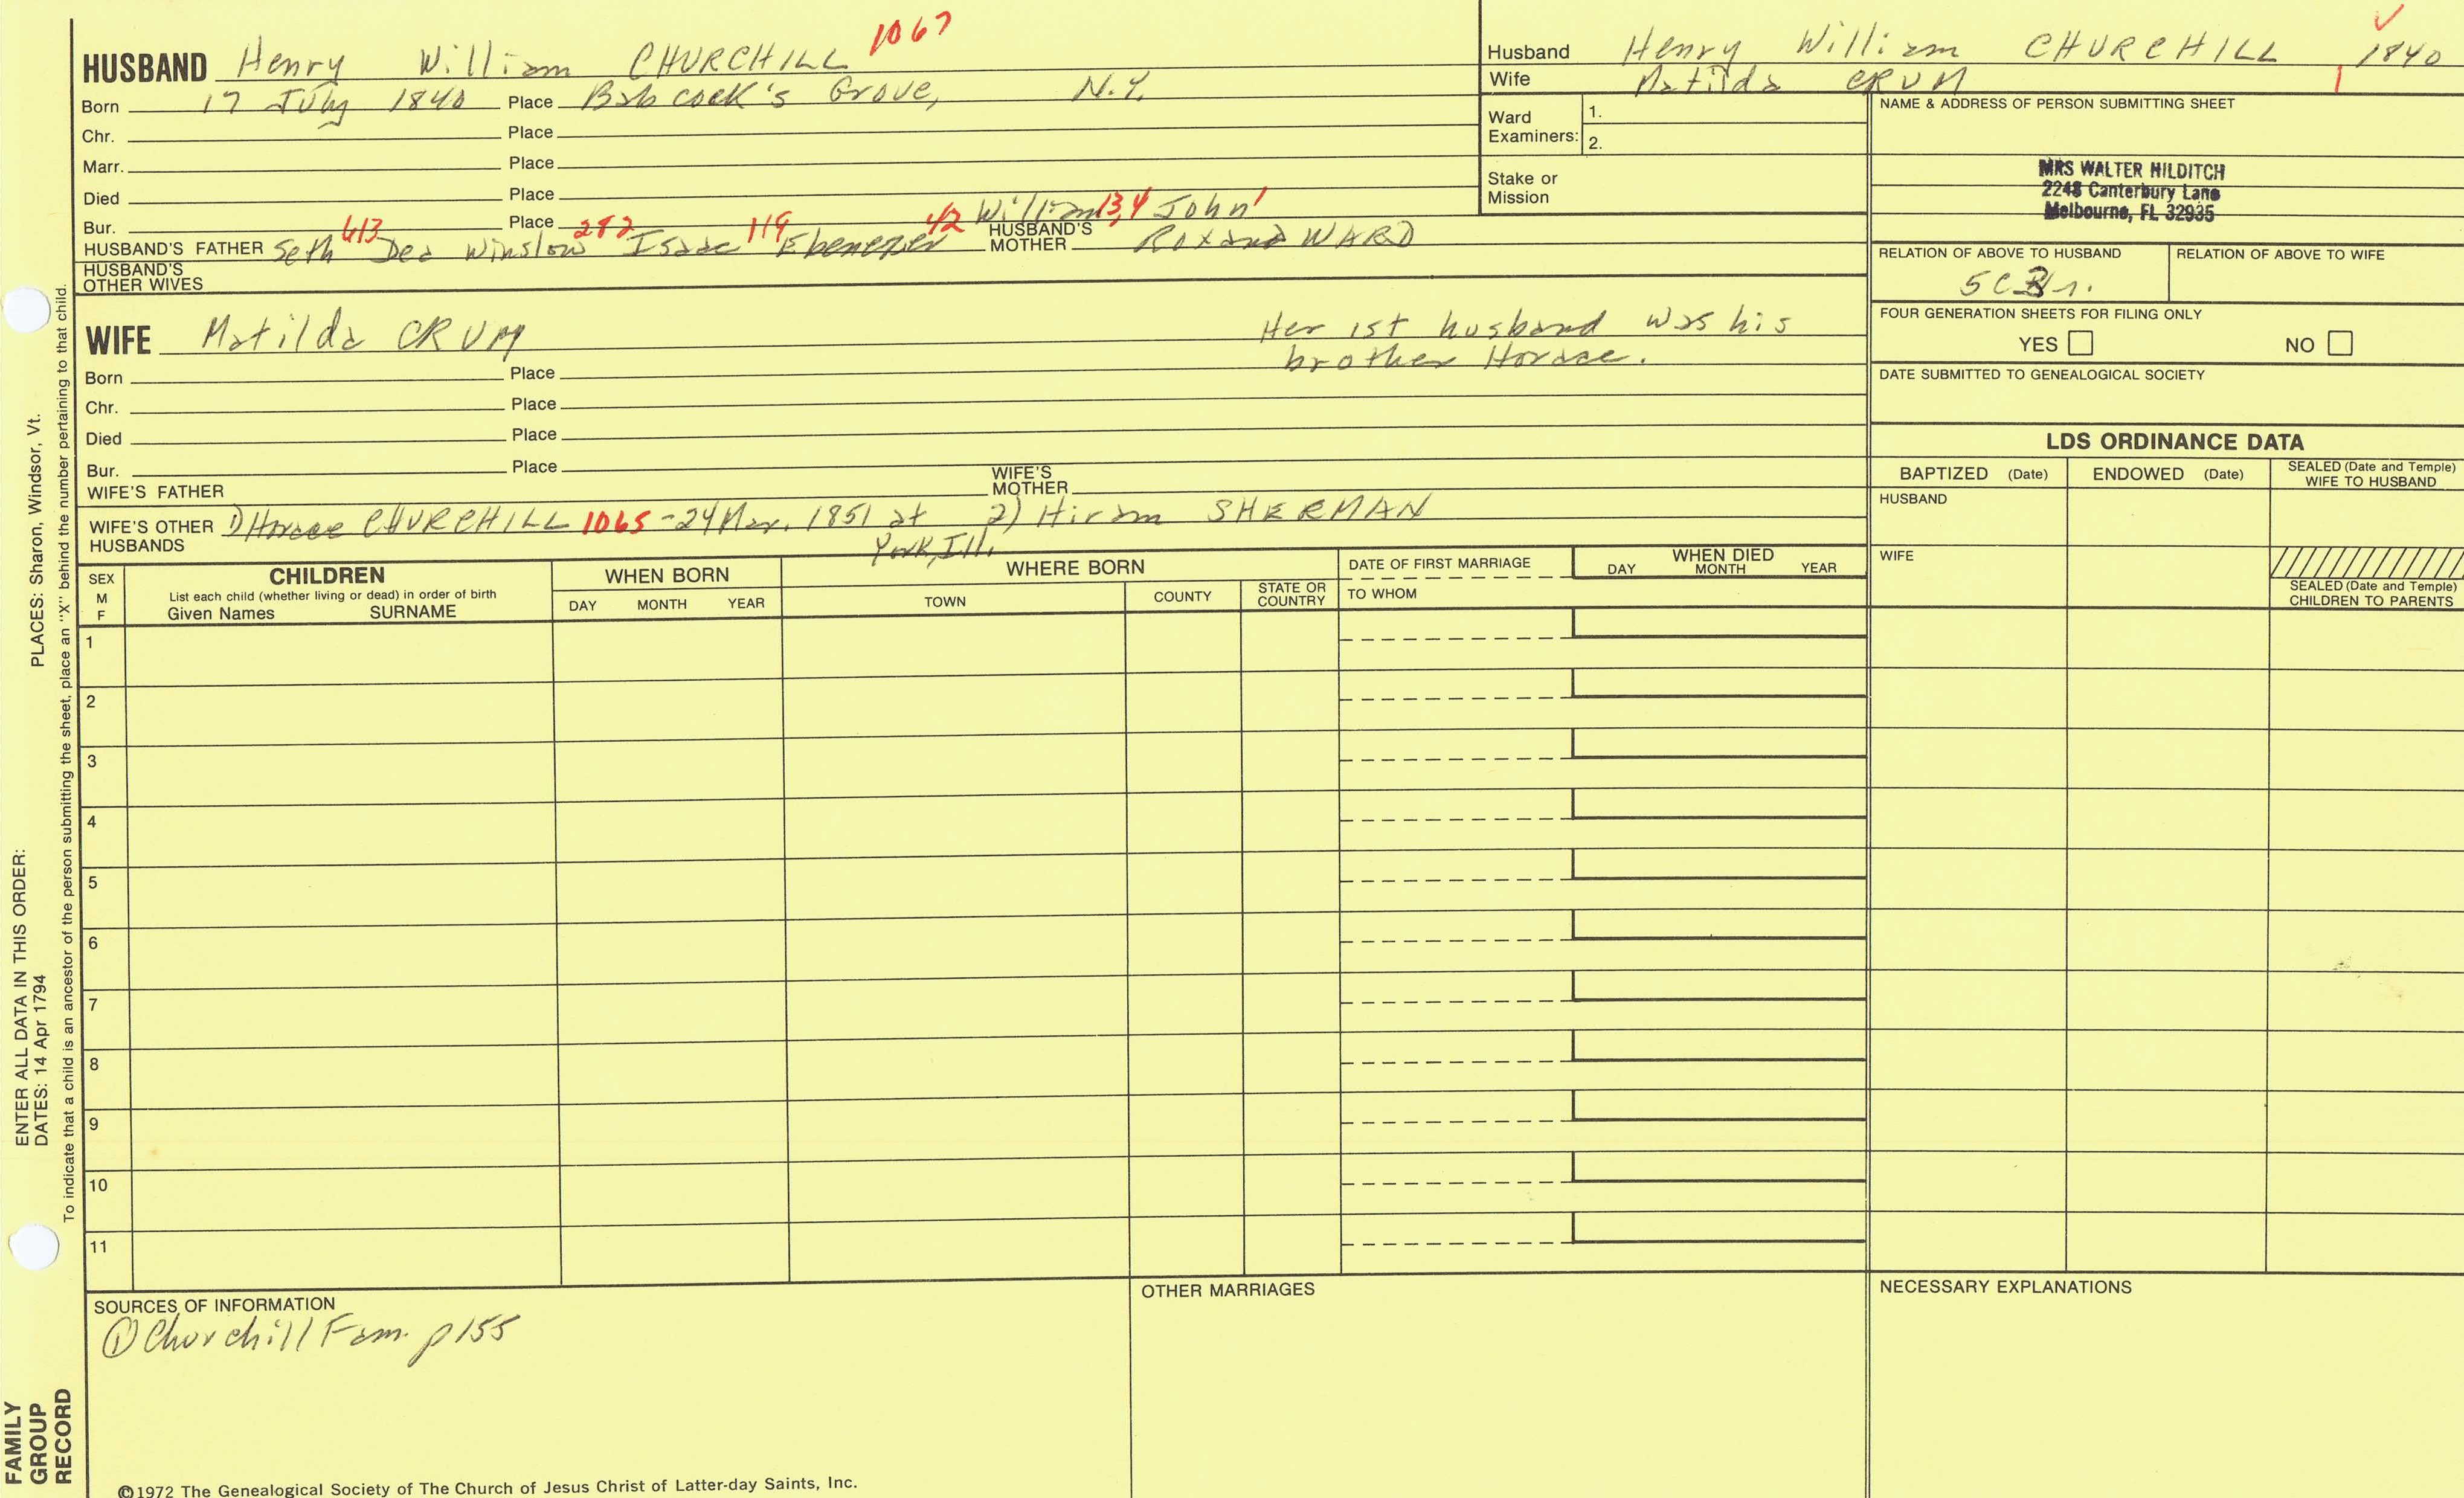 HUSBAND Henry William CHURCHILL 1067
Born 17 July 1840 Place Babcock's Grove, N.Y.
Chr. Place
Marr. Place
Died Place
Bur. Place
613 282 119 42 William 13,4 John 1
HUSBAND'S FATHER Seth Dea Winslow Isaac Ebenezer HUSBAND'S MOTHER Roxana WARD
HUSBAND'S OTHER WIVES
WIFE Matilda CRUM
Her 1st husband was his
brother Horace.
Born Place
Chr. Place
Died Place
Bur. Place
WIFE'S FATHER WIFE'S MOTHER
WIFE'S OTHER HUSBANDS 1) Horace CHURCHILL 1065 - 24 Mar. 1851 at York, Ill. 2) Hiram SHERMAN
Husband Henry William CHURCHILL 1840
Wife Matilda CRUM
Ward Examiners: 1.
2.
Stake or Mission
NAME & ADDRESS OF PERSON SUBMITTING SHEET
MRS WALTER HILDITCH
2248 Canterbury Lane
Melbourne, FL 32935
RELATION OF ABOVE TO HUSBAND RELATION OF ABOVE TO WIFE
FOUR GENERATION SHEETS FOR FILING ONLY
YES NO
DATE SUBMITTED TO GENEALOGICAL SOCIETY
LDS ORDINANCE DATA
BAPTIZED (Date) ENDOWED (Date) SEALED (Date and Temple) WIFE TO HUSBAND
HUSBAND
WIFE
SEALED (Date and Temple) CHILDREN TO PARENTS
SEX M F
CHILDREN
List each child (whether living or dead) in order of birth
Given Names SURNAME
WHEN BORN
DAY MONTH YEAR
WHERE BORN
TOWN COUNTY STATE OR COUNTRY
DATE OF FIRST MARRIAGE
TO WHOM
WHEN DIED
DAY MONTH YEAR
1
2
3
4
5
6
7
8
9
10
11
SOURCES OF INFORMATION
① Churchill Fam. p 155
OTHER MARRIAGES
NECESSARY EXPLANATIONS
©1972 The Genealogical Society of The Church of Jesus Christ of Latter-day Saints, Inc.
FAMILY
GROUP
RECORD
ENTER ALL DATA IN THIS ORDER:
DATES: 14 Apr 1794 PLACES: Sharon, Windsor, Vt.
To indicate that a child is an ancestor of the person submitting the sheet, place an "X" behind the number pertaining to that child.